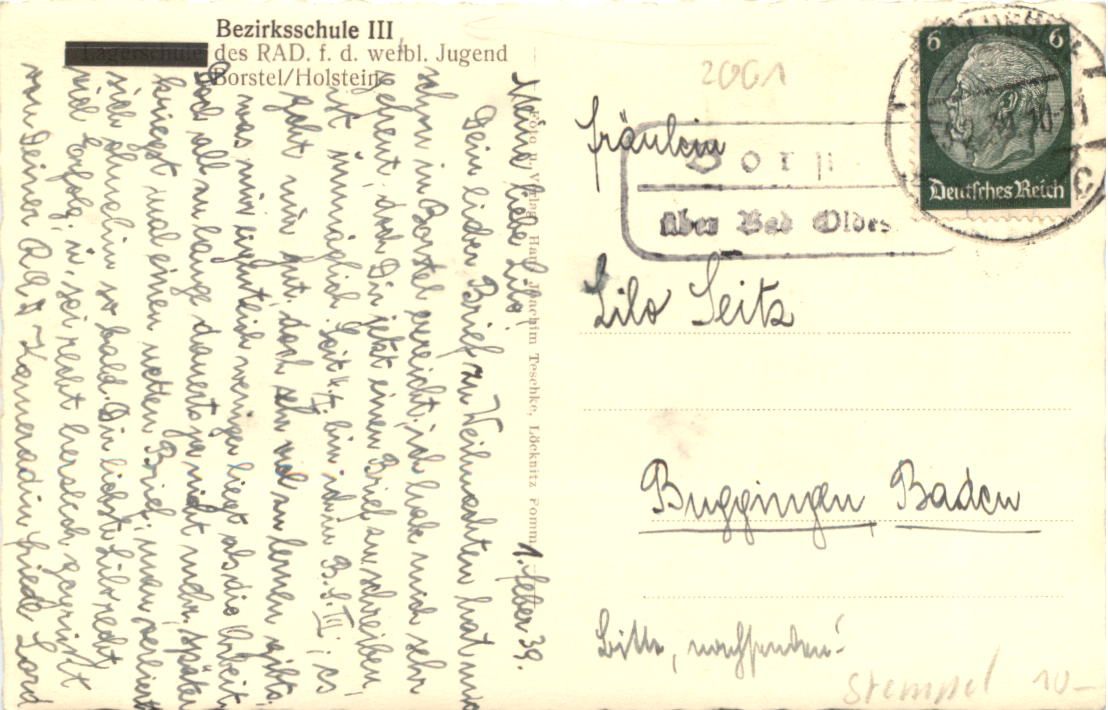 Bezirksschule III
Lagerschule des RAD. f. d. weibl. Jugend
Borstel/Holstein
1. Feber 39.
Meine liebe Lilo!
Dein lieber Brief zu Weihnachten hat mich
schon in Borstel erreicht, ich habe mich sehr
gefreut, doch Dir jetzt einen Brief zu schreiben,
ist unmöglich. Seit 4.I. bin ich in B.S. III, es
geht mir gut, doch sehr viel zu lernen gibts
was mir eigentlich weniger liegt als die Arbeit
doch all zu lange dauerts ja nicht mehr, später
kriegst mal einen netten Brief, man verliert
sich ohnehin so bald. Dir liebste Lilo recht
viel Erfolg u. sei recht herzlich gegrüsst
von Deiner RAD Kameradin Friedl
Foto u. Verlag Hans Joachim Teschke, Löcknitz Pomm.
2001
Fräulein
Borst
über Bad Oldes
6 6
Deutsches Reich
10-11
C
Lilo Seitz
Buggingen Baden
Bitte, nachsenden!
Stempel 10-